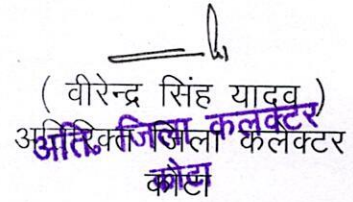 ( वीरेन्द्र सिंह यादव )
अतिरिक्त जिला कलक्टर
अति. जिला कलक्टर
कोटा
कोटा